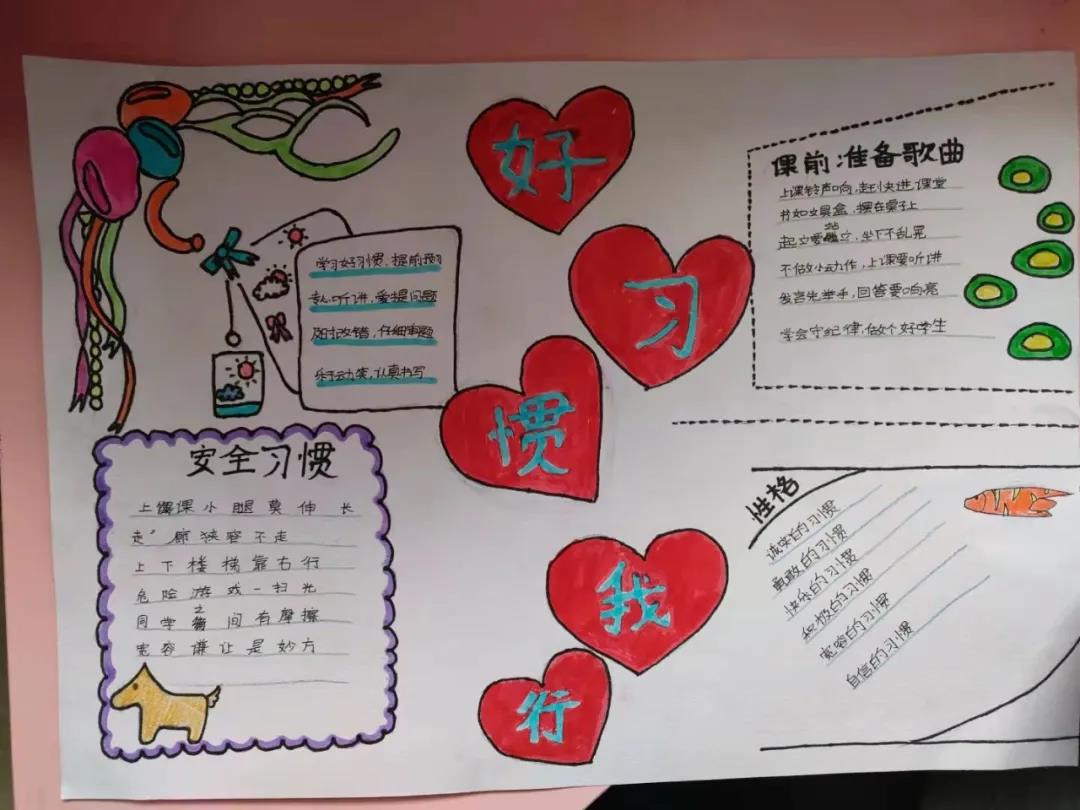 好
习
惯
我
行
学习好习惯、提前预习
专心听讲,爱提问题
及时改错,仔细审题
乐于动笔,认真书写
安全习惯
上课小腿莫伸长
走廊狭容不走
上下楼梯靠右行
危险游戏一扫光
同学之间有摩擦
宽容谦让是妙方
课前准备歌曲
上课铃声响,赶快进课堂
书如文具盒,摆在桌子上
起立爱站立,坐下不乱晃
不做小动作,上课要听讲
发言先举手,回答要响亮
学会守纪律,做个好学生
性格
诚实的习惯
勇敢的习惯
快乐的习惯
积极的习惯
宽容的习惯
自信的习惯